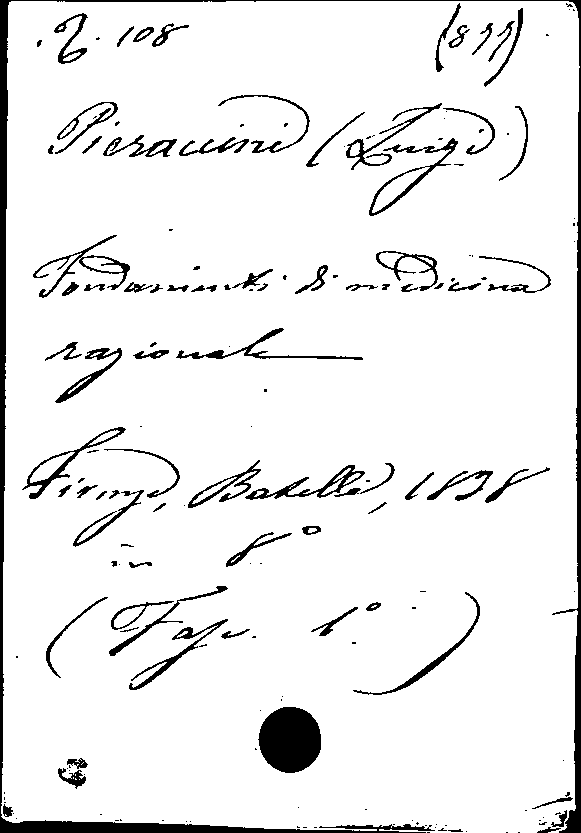 108 (877)
Pieraccini (Luigi)
Fondamenti di medicina
razionale
Firenze, Batelli, 1838
in 8º
(Fasc. 1º)